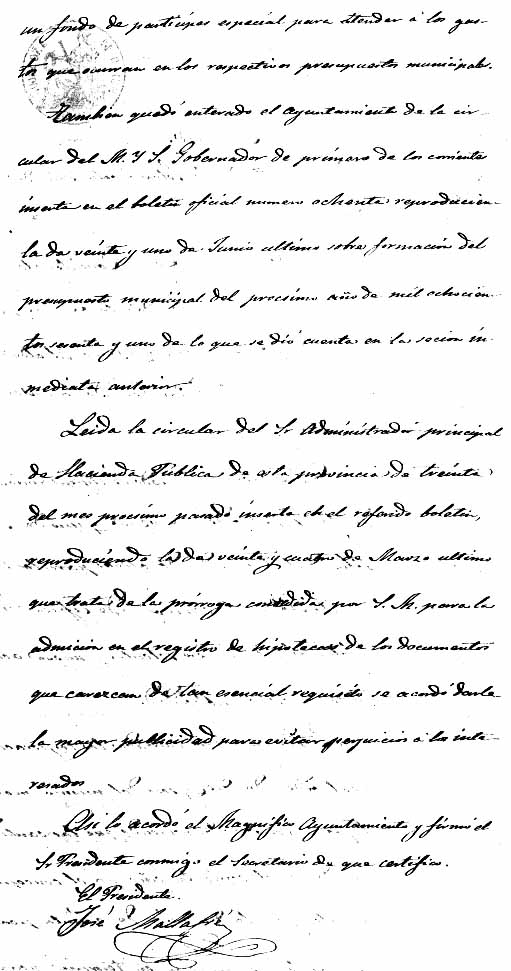 un fondo de participes especial para atender á los gas-
tos que ocurran en los respectivos presupuestos municipals.
Tambien quedó enterado el Ayuntamiento de la cir-
cular del M. Y S. Gobernador de primero de los corrientes
inserta en el boletin oficial numero ochenta reproducien-
la da veinte y uno de Junio ultimo sobre formación del
presupuesto municipal del procsimo año de mil ochocien-
tos sesenta y uno de lo que se dió cuenta en la secion in-
mediata anterior.
Leida la circular del Sr Administrador principal
de Hacienda Pública de esta provincia de treinta
del mes procsimo pasado inserta en el referido boletin,
reproduciendo la de veinte y cuatro de Marzo ultimo
que trata de la prórroga concedida por S. M. para la
admicion en el registro de hipotecas de los documentos
que carezcan de tan esencial requisito se acordó darle
la mayor publicidad para evitar perjuicios á los inte-
resados
Asi lo acordó el Magnifico Ayuntamiento y firmó el
Sr Presidente conmigo el Secretario de que certifico.
El Presidente
José